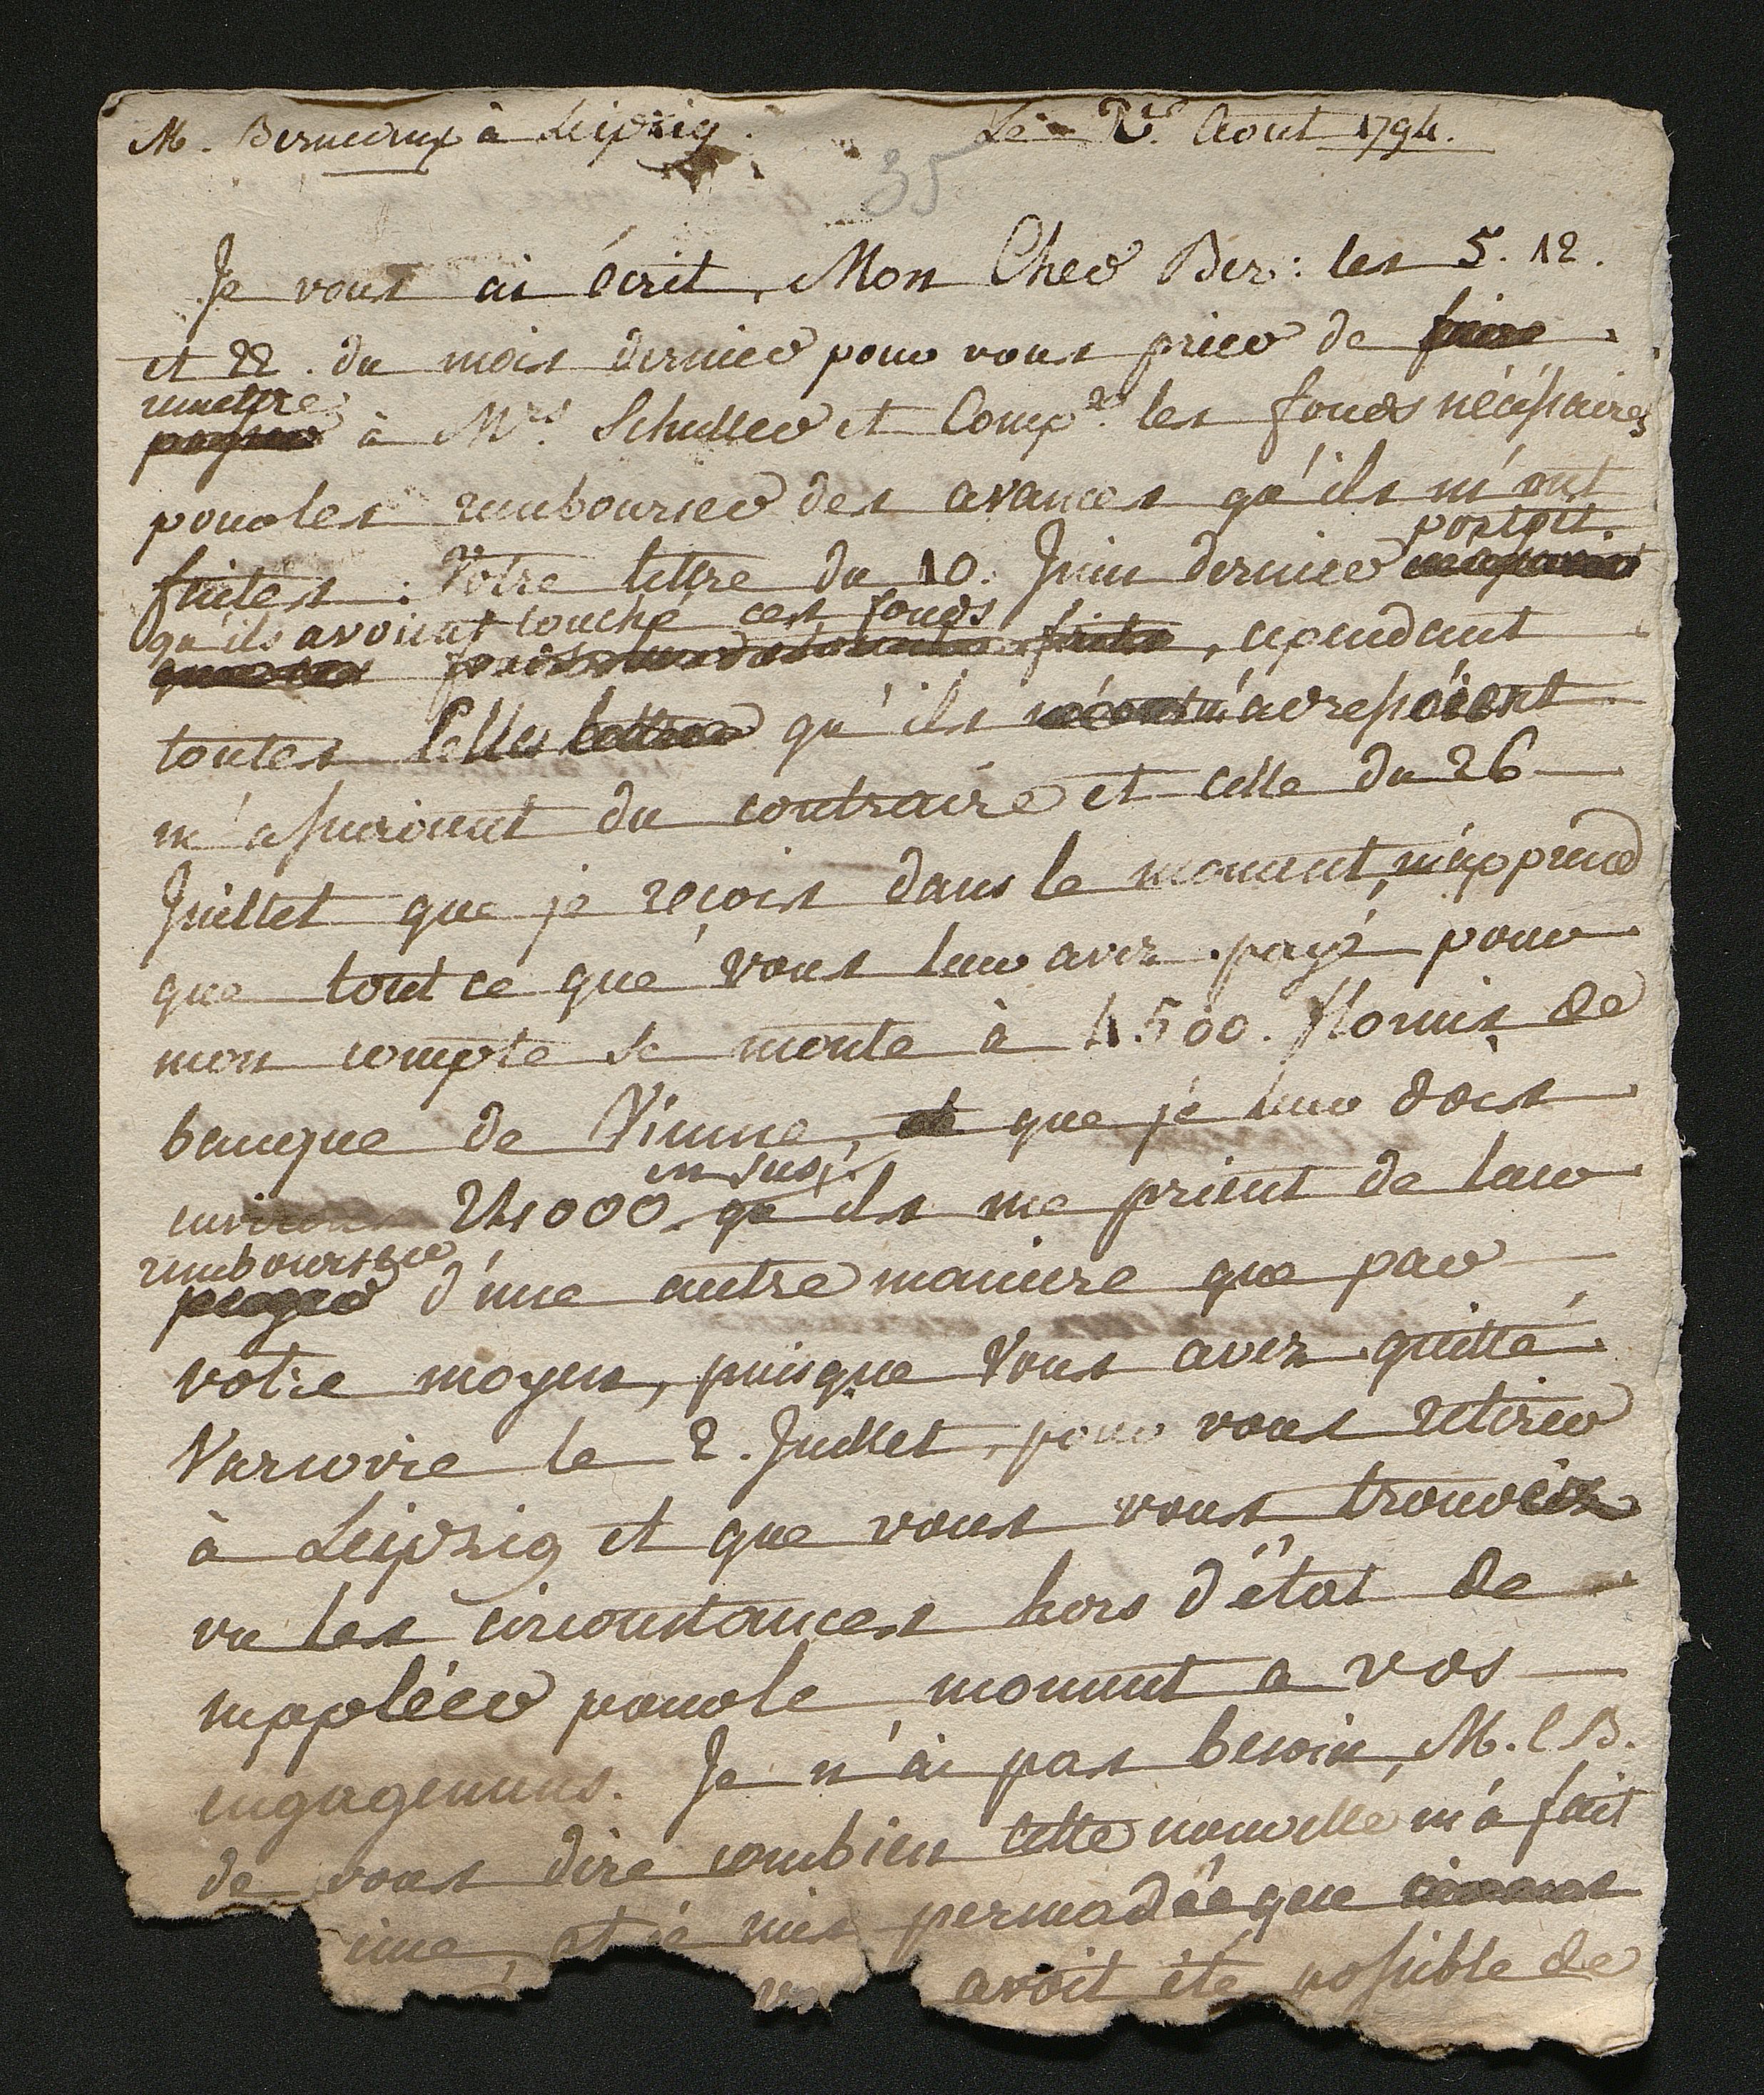 M. Berneaux à Leipzig.
Le 2. Aout 1794.
35
Je vous ai écrit, Mon Cher Ber: les 5. 12.
et 22. du mois dernier pour vous prier de faire
remettre
payer à Mrs. Schuller et Compe. les fonds nécessaires
pour les rembourser des avances qu'ils m'ont
portoit
faites: Votre lettre du 10. Juin dernier
qu'ils avoient touché ces fonds
cependant
toutes celles lettres qu'ils m'adressoient
m'assuroient du contraire et celle du 26
Juillet que je reçois dans le moment, m'apprend
que tout ce que vous leur avez payé pour
mon compte se monte à 4500. florins de
banque de Vienne, et que je leur dois
en sus;
environ 24000 qu'ils me prient de leur
rembourser
payer d'une autre maniere que par
votre moyen, puisque Vous avez quitté
Varsovie le 2. Juillet, pour vous retirer
à Leipzig et que vous vous trouviez
vu les circonstances hors d'état de
suppléer pour le moment a vos
engagemens. Je n'ai pas besoin, M. C B.
de vous dire combien cette nouvelle m'a fait
et je suis persuadé que
avoit été possible de